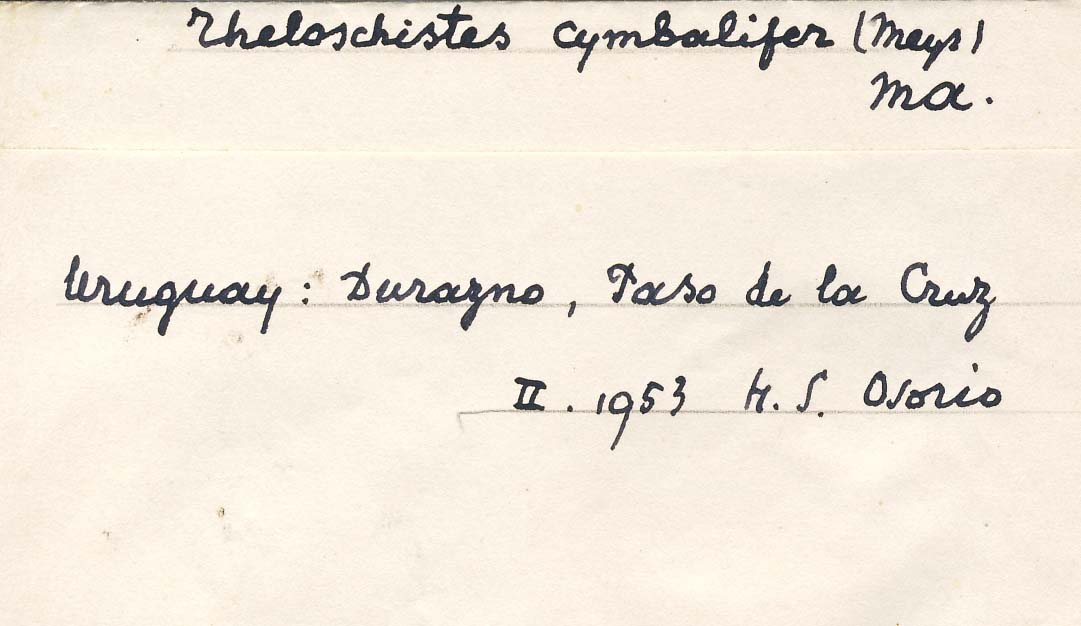 Theloschistes cymbalifer (Meys)
Ma.
Uruguay: Durazno, Paso de la Cruz
II. 1953 H. S. Osorio